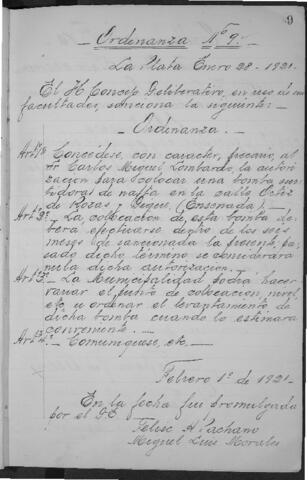 9
Ordenanza Nº 9.-
La Plata Enero 28 - 1921.
El H. Concejo Deliberativo, en uso de sus
facultades, sanciona la siguiente:
- Ordenanza. -
Artº 1º Concédese, con caracter, precario, al
Sr Carlos Miguel Lombardo, la autori-
zacion para colocar una bomba sur-
tidora de nafta en la calle Ortiz
de Rozas y (Ensenada).-
Artº 2º. - La colocacion de esta bomba de-
berá efectuarse dentro de los seis
meses de sancionada la presente, pa-
sado dicho termino se considerará
nula dicha autorizacion.-
Artº 3º. - La Municipalidad podrá hacer
variar el punto de colocacion, nivel,
etc. u ordenar el levantamiento de
dicha bomba cuando lo estimara
conveniente. -
Artº 4º. - Comuniquese, etc. -
Febrero 1º de 1921.-
En la fecha fué promulgada
por el
Felise A Pachano
Miguel Luis Morales